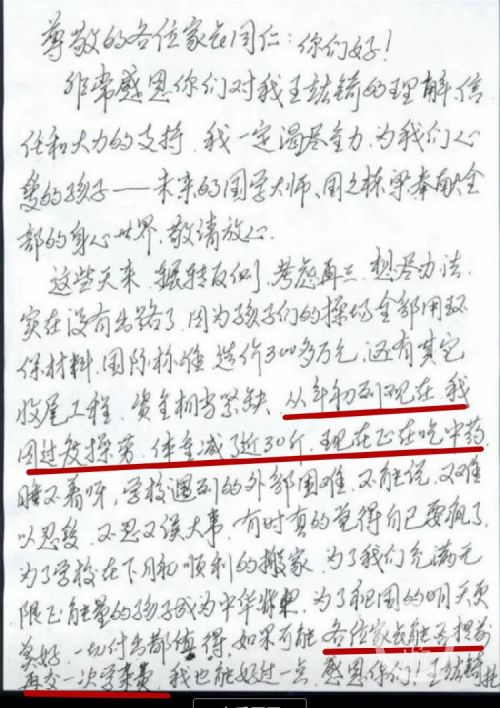 尊敬的各位家长同仁：你们好！
非常感恩你们对我王喆锜的理解信
任和大力的支持，我一定竭尽全力，为我们心
爱的孩子——未来的国学大师、国之栋梁奉献全
部的身心世界，敬请放心。
这些天来，辗转反侧，考虑再三，想尽办法，
实在没有出路了，因为孩子们的操场全部用环
保材料，国际标准，造价300多万元，还有其它
收尾工程，资金相当紧缺，从年初到现在，我
因过度操劳，体重减了近30斤，现在正在吃中药，
睡又着呀，学校遇到的外部困难，不能说，又难
以忍受，又忍又误大事，有时真的觉得自己要疯了，
为了学校在下月初顺利的搬家，为了我们充满无
限正能量的孩子成为中华，为了祖国的明天更
美好，一切付出都值得，如果可能，各位家长能否提前
再交一次学杂费，我也能好过一点，感恩你们！王喆锜